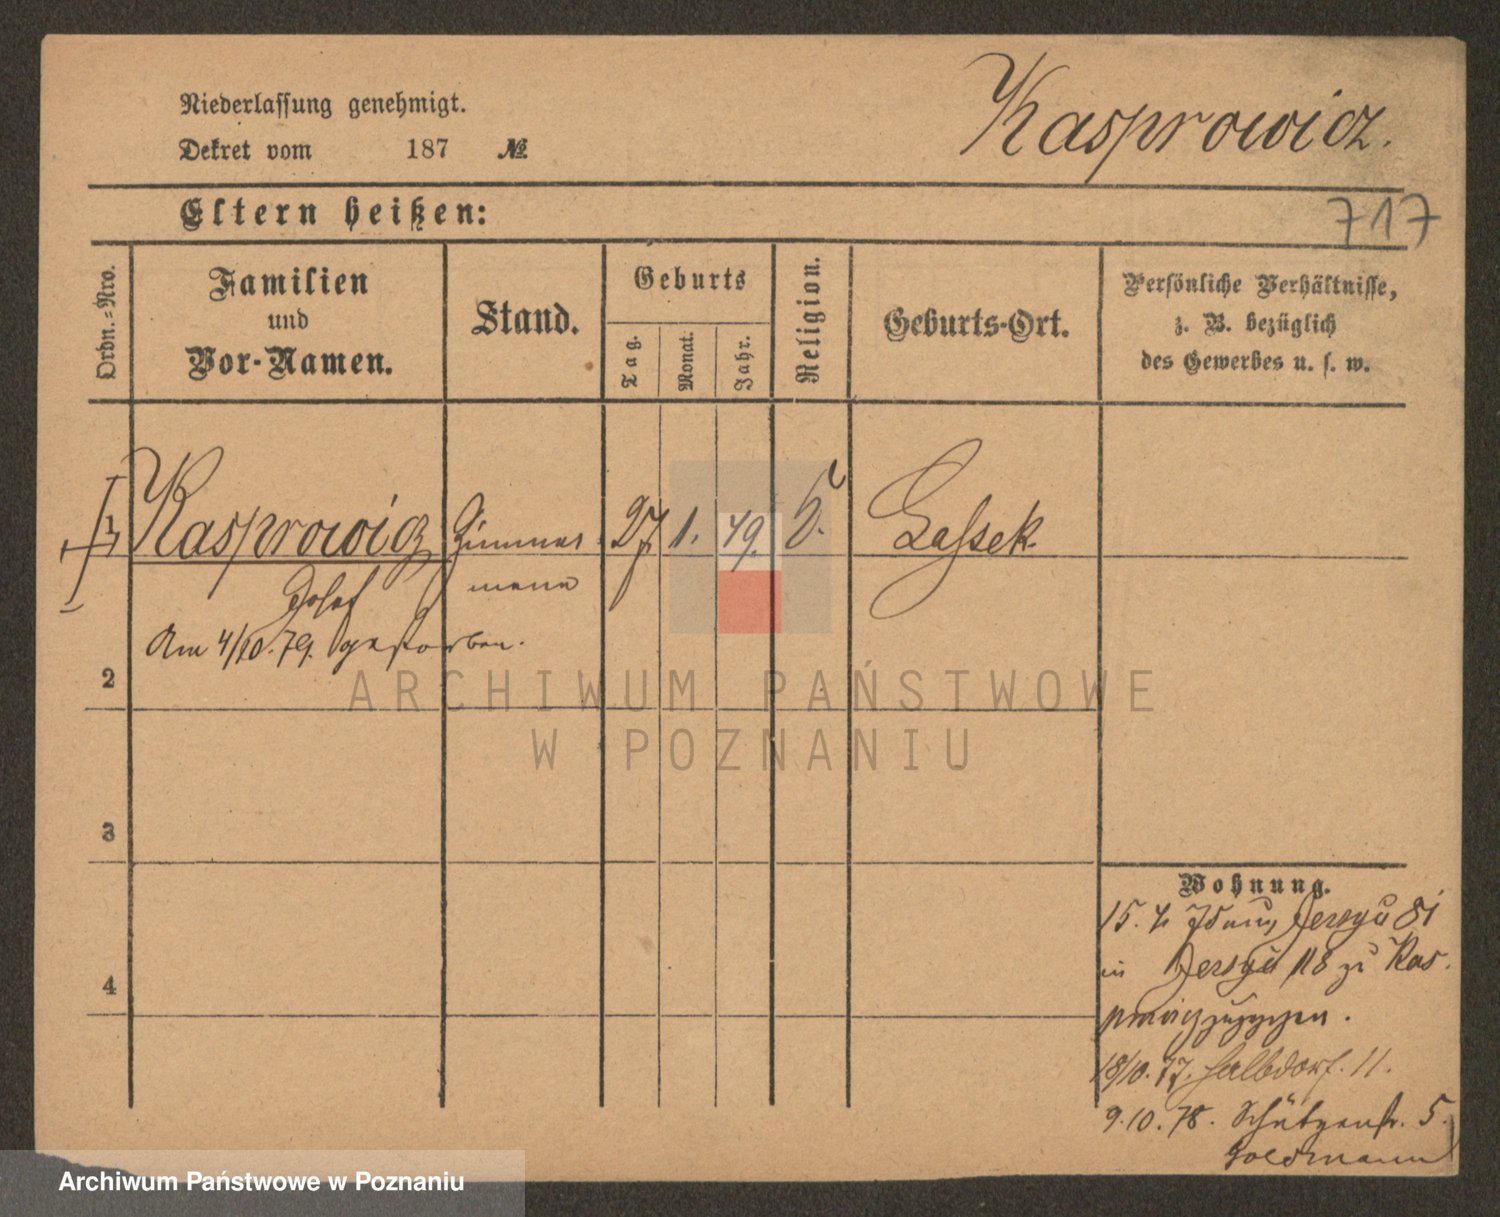 Niederlassung genehmigt.
Dekret vom 187 №
Kasprowicz.
717
Eltern heißen:
Ordn.=Nro.
Familien
und
Vor-Namen.
Stand.
Geburts
Tag.
Monat.
Jahr.
Religion.
Geburts-Ort.
Persönliche Verhältnisse,
z. B. bezüglich
des Gewerbes u. s. w.
1 Kasprowicz Zimmer 27 1. 49. Lassek
Josef mann
Am 4/10.79. gestorben.
2
3
4
Wohnung.
15. Jersyce 81
in Jersyce 118 zu Kas-
18/10. 77. Halbdorf. 11.
9.10.78. Schützenstr. 5.
Goldmann
ARCHIWUM PAŃSTWOWE
W POZNANIU
Archiwum Państwowe w Poznaniu